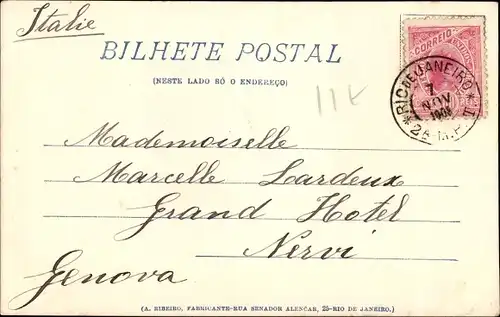 Italie
BILHETE POSTAL
(NESTE LADO SÓ O ENDEREÇO)
CORREIO
RIO DE JANEIRO
7
NOV
11 €
Mademoiselle
Marcelle Lardeux
Grand Hotel
Nervi
Genova
(A. RIBEIRO, FABRICANTE-RUA SENADOR ALENCAR, 25-RIO DE JANEIRO.)